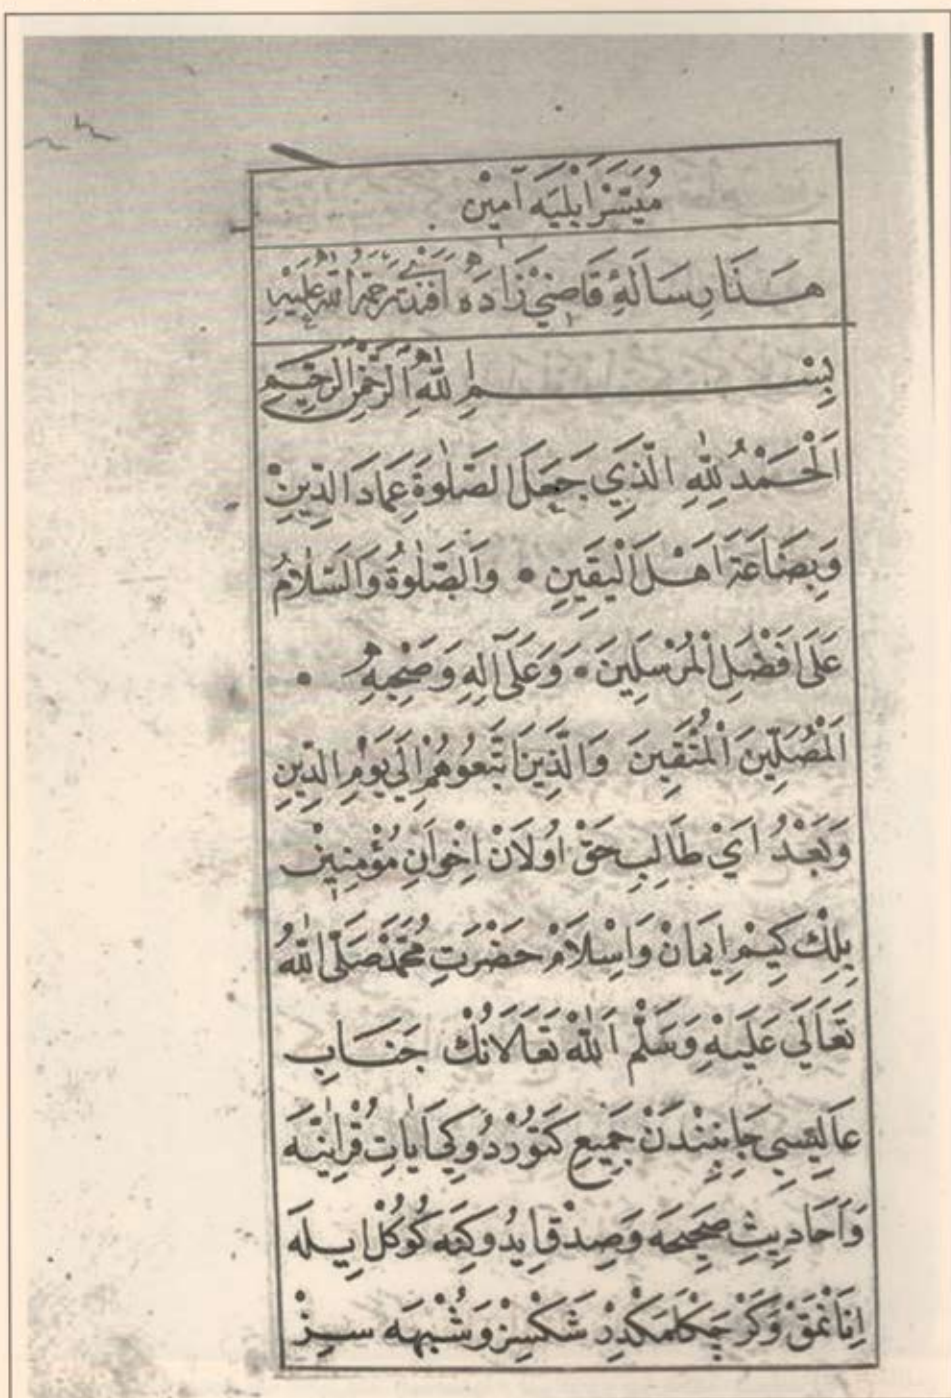 مُيَسَّرْ اَيْلِيَه آمِينْ
هَذَا رِسَالَهِٔ قَاضِيْ زَادَهْ اَفَنْدِي رَحْمَةُ اللّٰهِ عَلَيْهِ
بِسْمِ اللّٰهِ الرَّحْمٰنِ الرَّحِيمِ
اَلْحَمْدُ لِلّٰهِ الَّذِي جَعَلَ الصَّلٰوةَ عِمَادَ الدِّينِ
وَبِضَاعَةَ اَهْلِ الْيَقِينِ • وَالصَّلٰوةُ وَالسَّلَامُ
عَلَى اَفْضَلِ الْمُرْسَلِينَ • وَعَلَى آلِهِ وَصَحْبِهِ •
اَلْمُصَلِّينَ الْمُتَّقِينَ وَالَّذِينَ اتَّبَعُوهُمْ اِلَي يَوْمِ الدِّينِ
وَبَعْدُ اَيْ طَالِبِ حَقْ اُولَانْ اِخْوَانِ مُؤْمِنِينْ
بِلِكْ كِيمْ اِيمَانْ وَاِسْلَامْ حَضْرَتِ مُحَمَّدْ صَلَّى اللّٰهُ
تَعَالَي عَلَيْهِ وَسَلَّمْ اَللّٰهْ تَعَالَانُكْ جَنَابِ
عَالِيسِي جَانِبِنْدَنْ جَمِيعِ كَتُورْدُوكِي آيَاتِ قُرْاٰنِيَّه
وَاَحَادِيثِ صَحِيحَه وَصِدْقَايدُوكِنَه كُوكُلْ اِيلَه
اِنَانْمَقْ وَكَرْچَكْلَمَكْدِرْ شَكْسِزْ وَشُبْهَه سِزْ